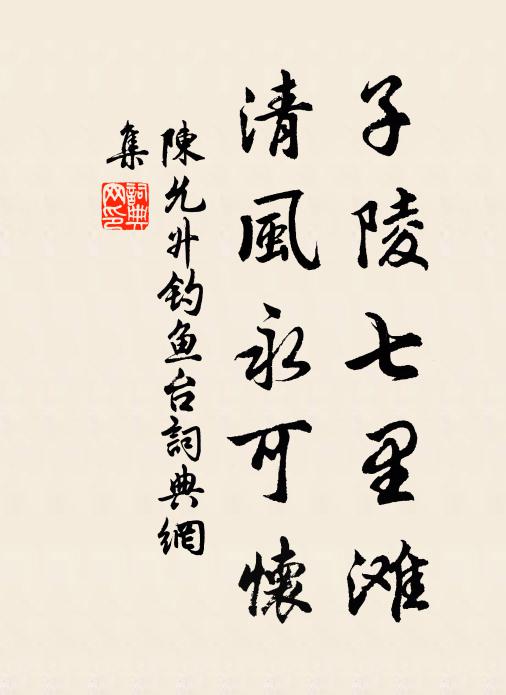 子陵七里滩
清風永可懷
陳允升釣鱼台詞典網
集
詞典
网印